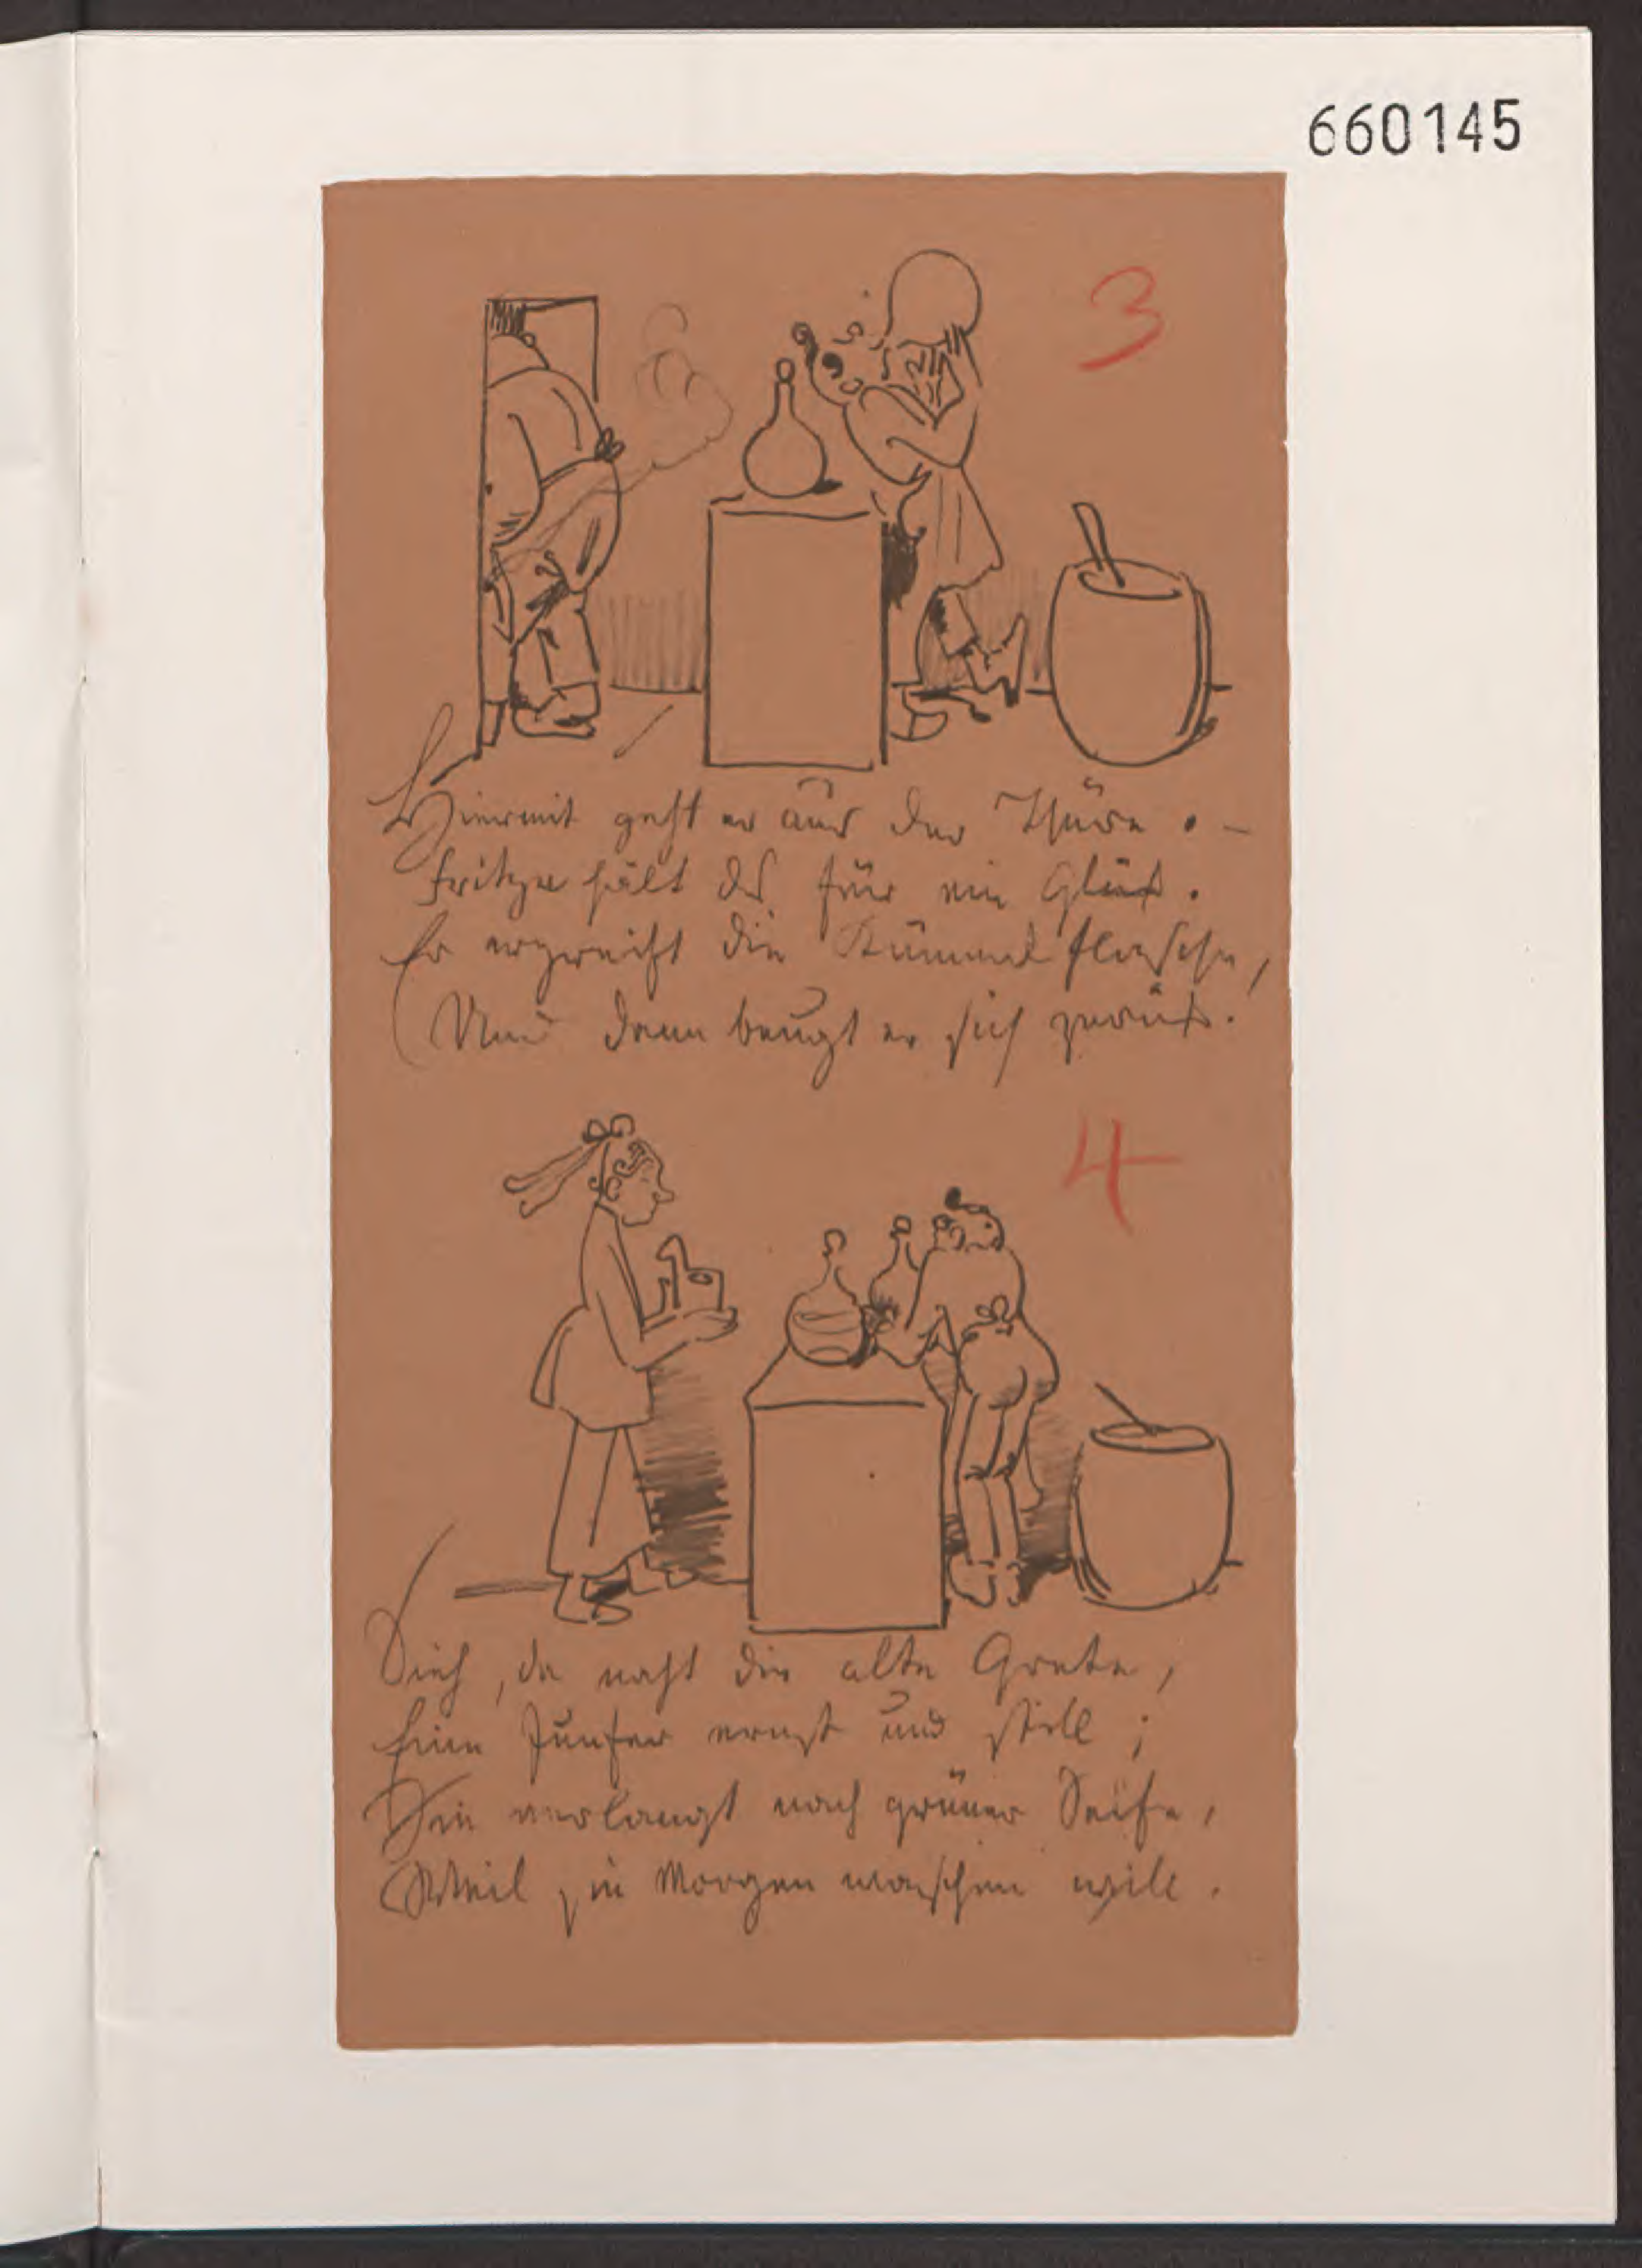 660145
3
Hiermit geht er aus der Thüre. –
Fritze hält es für ein Glück.
Er ergreift die Kümmelflasche,
Und dann beugt er sich zurück.
4
Sieh, da naht die alte Grete,
Eine Junfer ernst und still;
Sie verlangt nach grüner Seife,
Weil sie Morgen waschen will.